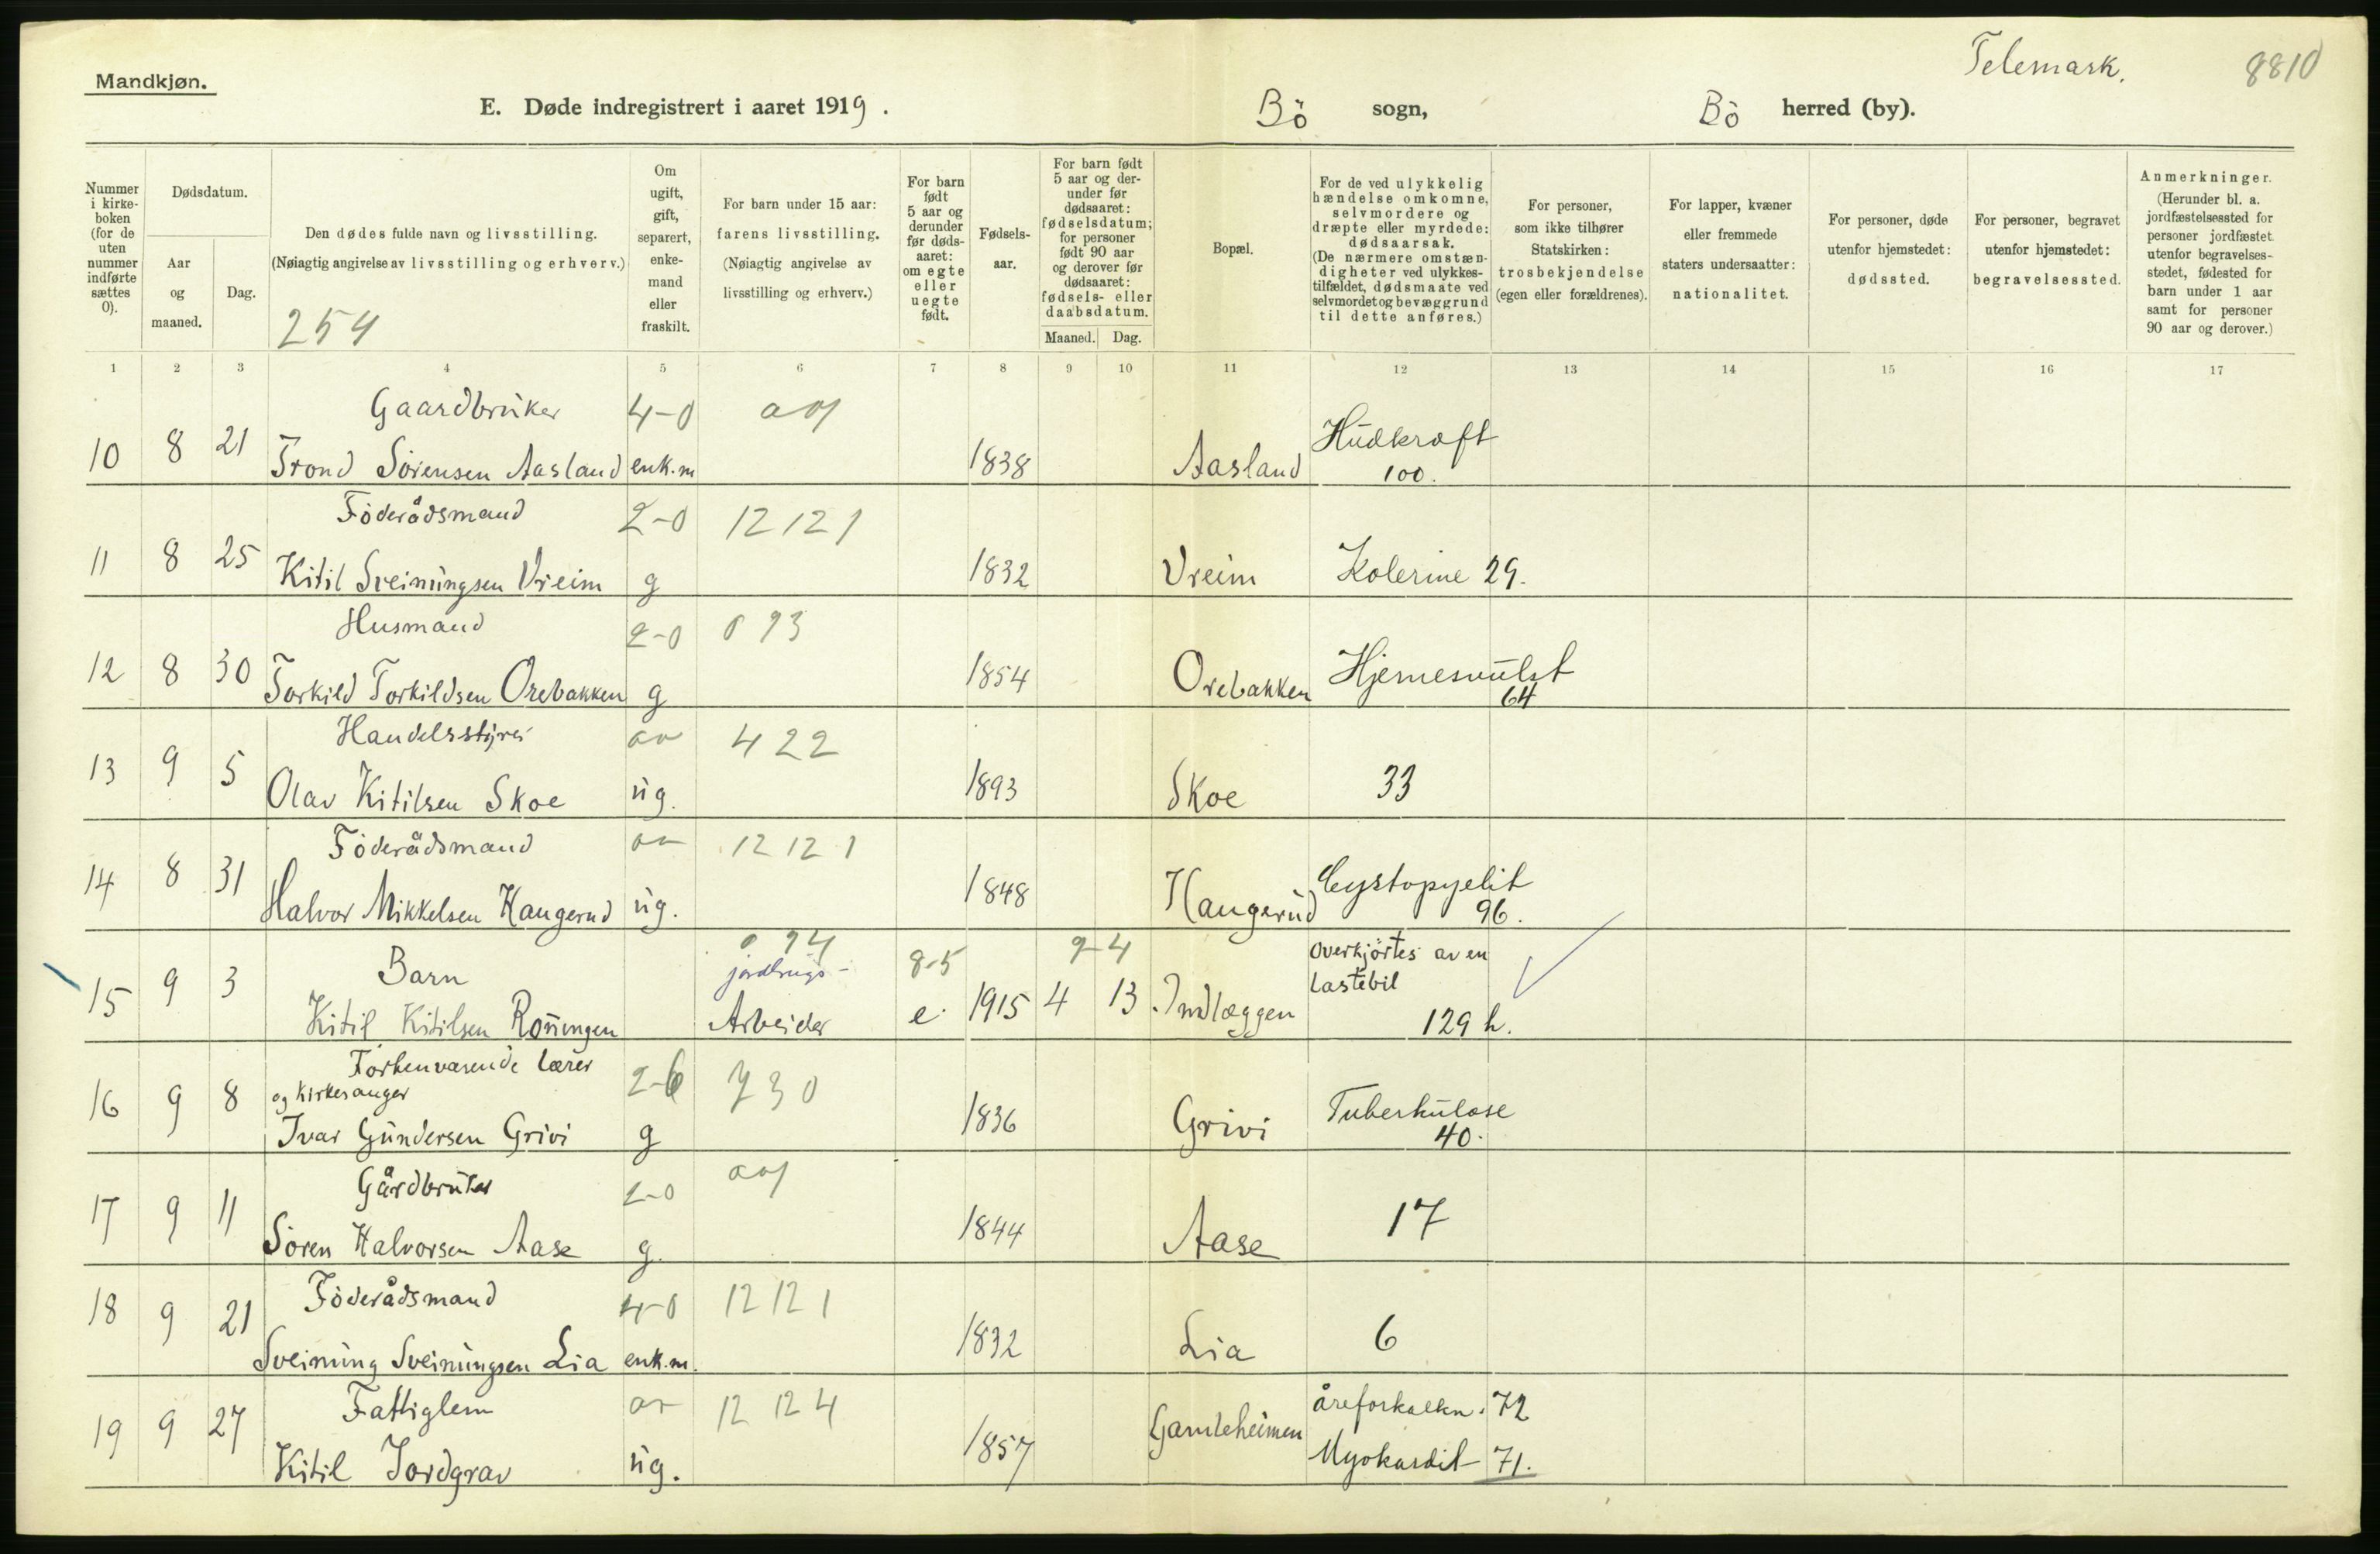 Mandkjøn.
Telemark.
8810
E. Døde indregistrert i aaret 1919.
Bö sogn,
Bö herred (by).
Nummer i kirkeboken (for de uten nummer indførte sættes 0).
Dødsdatum.
Aar og maaned.
Dag.
Den dødes fulde navn og livsstilling.
(Nøiagtig angivelse av livsstilling og erhverv.)
254
Om ugift, gift, separert, enkemand eller fraskilt.
For barn under 15 aar: farens livsstilling. (Nøiagtig angivelse av livsstilling og erhverv.)
For barn født 5 aar og derunder før dødsaaret: om egte eller uegte født.
Fødselsaar.
For barn født 5 aar og derunder før dødsaaret: fødselsdatum; for personer født 90 aar og derover før dødsaaret: fødsels- eller daabsdatum.
Maaned. Dag.
Bopæl.
For de ved ulykkelig hændelse omkomne, selvmordere og dræpte eller myrdede: dødsaarsak. (De nærmere omstændigheter ved ulykkestilfældet, dødsmaate ved selvmordet og bevæggrund til dette anføres.)
For personer, som ikke tilhører Statskirken: trosbekjendelse (egen eller forældrenes).
For lapper, kvæner eller fremmede staters undersaatter: nationalitet.
For personer, døde utenfor hjemstedet: dødssted.
For personer, begravet utenfor hjemstedet: begravelsessted.
Anmerkninger. (Herunder bl. a. jordfæstelsessted for personer jordfæstet utenfor begravelsesstedet, fødested for barn under 1 aar samt for personer 90 aar og derover.)
1 2 3 4 5 6 7 8 9 10 11 12 13 14 15 16 17
Gaardbruker 4-0
10 8 21 Trond Sörensen Aasland enk.m 1838 Aasland Hudkræft 100.
Föderådsmand 2-0 12 12 1
11 8 25 Kitil Sveinungsen Vreim g 1832 Vreim Kolerine 29.
Husmand 2-0 0 93
12 8 30 Torkild Torkildsen Orebakken g 1854 Orebakken Hjernesvulst 64
Handelsstyrer 422
13 9 5 Olav Kitilsen Skoe ug. 1893 Skoe 33
Föderådsmand 12 12 1
14 8 31 Halvor Mikkelsen Haugerud ug. 1848 Haugerud Cystopyelit 96.
Barn jordbrugs- 8-5 9-4 Overkjörtes av en
15 9 3 Kitil Kitilsen Rönningen Arbeider e. 1915 4 13 Indlæggen lastebil 129 h.
Forhenværende lærer 2-6 730
og kirkesanger
16 9 8 Ivar Gundersen Grivi g 1836 Grivi Tuberkulose 40.
Gårdbruker 2-0
17 9 11 Sören Halvorsen Aase g. 1844 Aase 17
Föderådsmand 4-0 12 12 1
18 9 21 Sveinung Sveinungsen Lia enk.m. 1832 Lia 6
Fattiglem 12 12 4 åreforkalkn. 72
19 9 27 Kitil Jordgrav ug. 1857 Gamleheimen Myokardit 71.